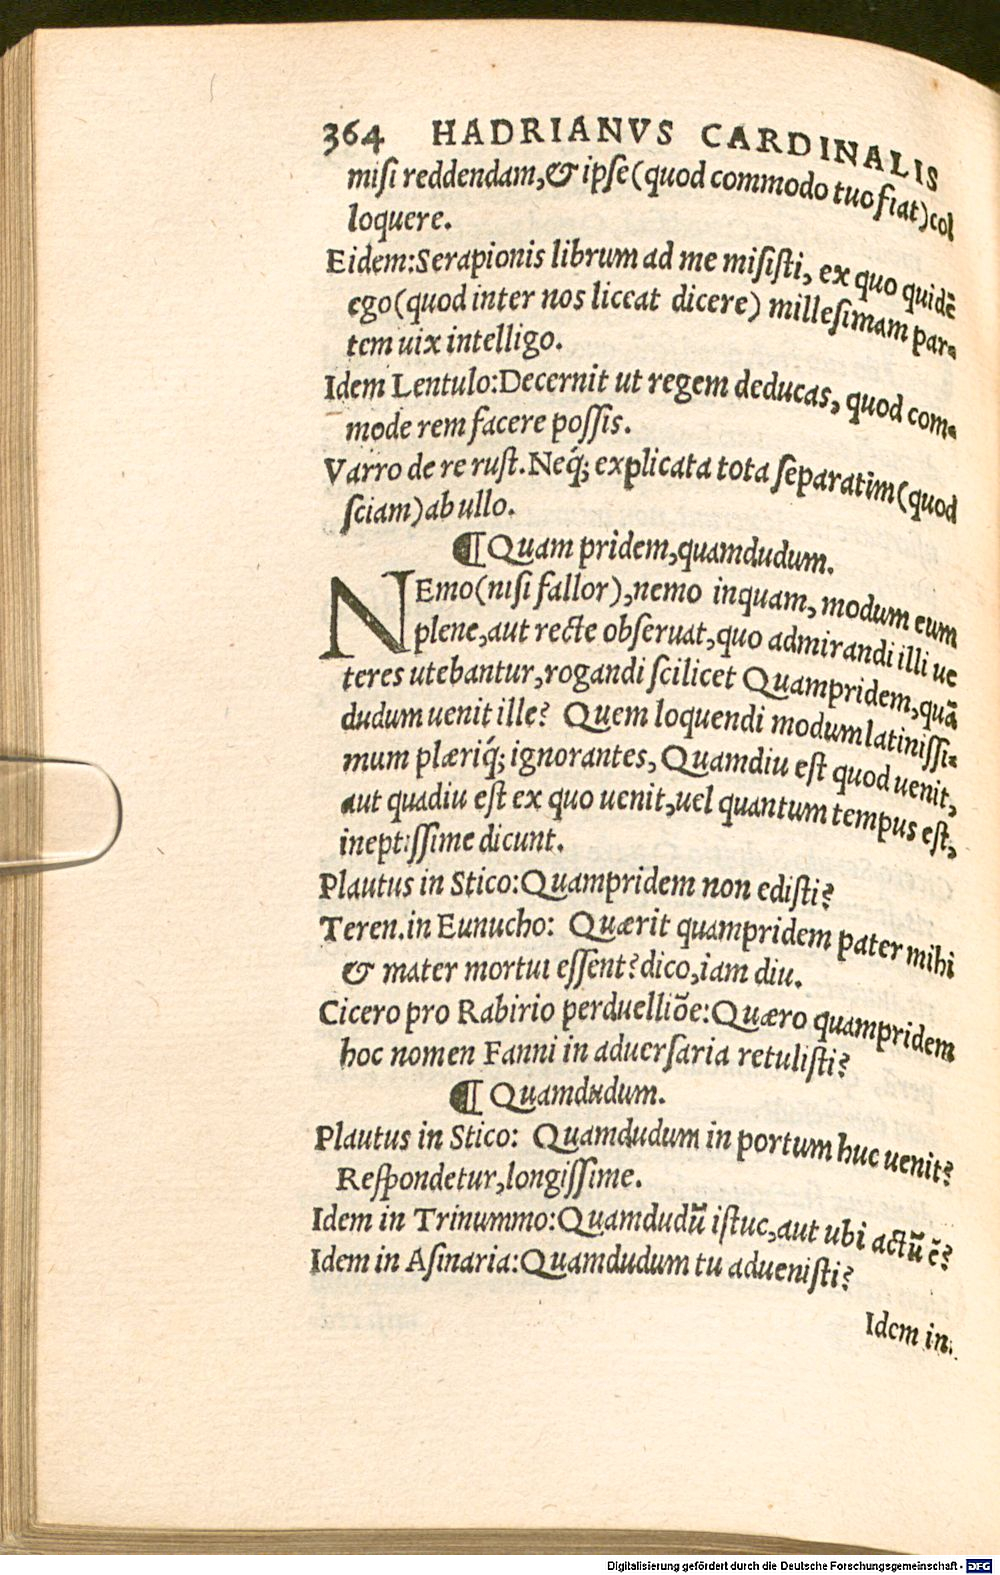 364 HADRIANVS CARDINALIS
misi reddendam, & ipse (quod commodo tuo fiat) col
loquere.
Eidem: Serapionis librum ad me misisti, ex quo quidē
ego (quod inter nos liceat dicere) millesimam par-
tem uix intelligo.
Idem Lentulo: Decernit ut regem deducas, quod com-
mode rem facere possis.
Varro de re rust. Neq́; explicata tota separatim (quod
sciam) ab ullo.
¶ Quam pridem, quamdudum.
NEmo (nisi fallor), nemo inquam, modum eum
plene, aut recte obseruat, quo admirandi illi ue
teres utebantur, rogandi scilicet Quampridem, quā
dudum uenit ille? Quem loquendi modum latinissi-
mum plæriq́; ignorantes, Quamdiu est quod uenit,
aut quadiu est ex quo uenit, uel quantum tempus est,
ineptissime dicunt.
Plautus in Stico: Quampridem non edisti?
Teren. in Eunucho: Quærit quampridem pater mihi
& mater mortui essent? dico, iam diu.
Cicero pro Rabirio perduelliōe: Quæro quampridem
hoc nomen Fanni in aduersaria retulisti?
¶ Quamdudum.
Plautus in Stico: Quamdudum in portum huc uenit?
Respondetur, longissime.
Idem in Trinummo: Quamdudū istuc, aut ubi actū ē?
Idem in Asinaria: Quamdudum tu aduenisti?
Idem in.
Digitalisierung gefördert durch die Deutsche Forschungsgemeinschaft - DFG